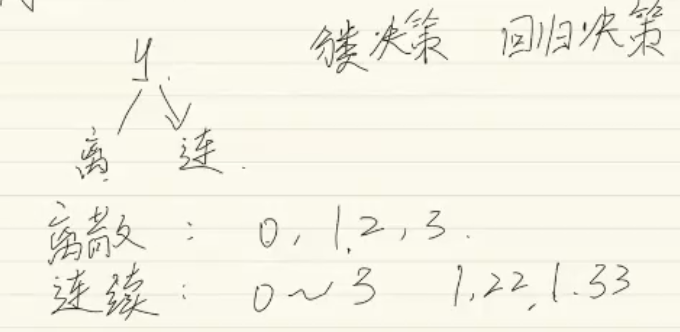 y. 分类决策 回归决策
离 连.
离散: 0, 1, 2, 3.
连续: 0~3 1.22, 1.33